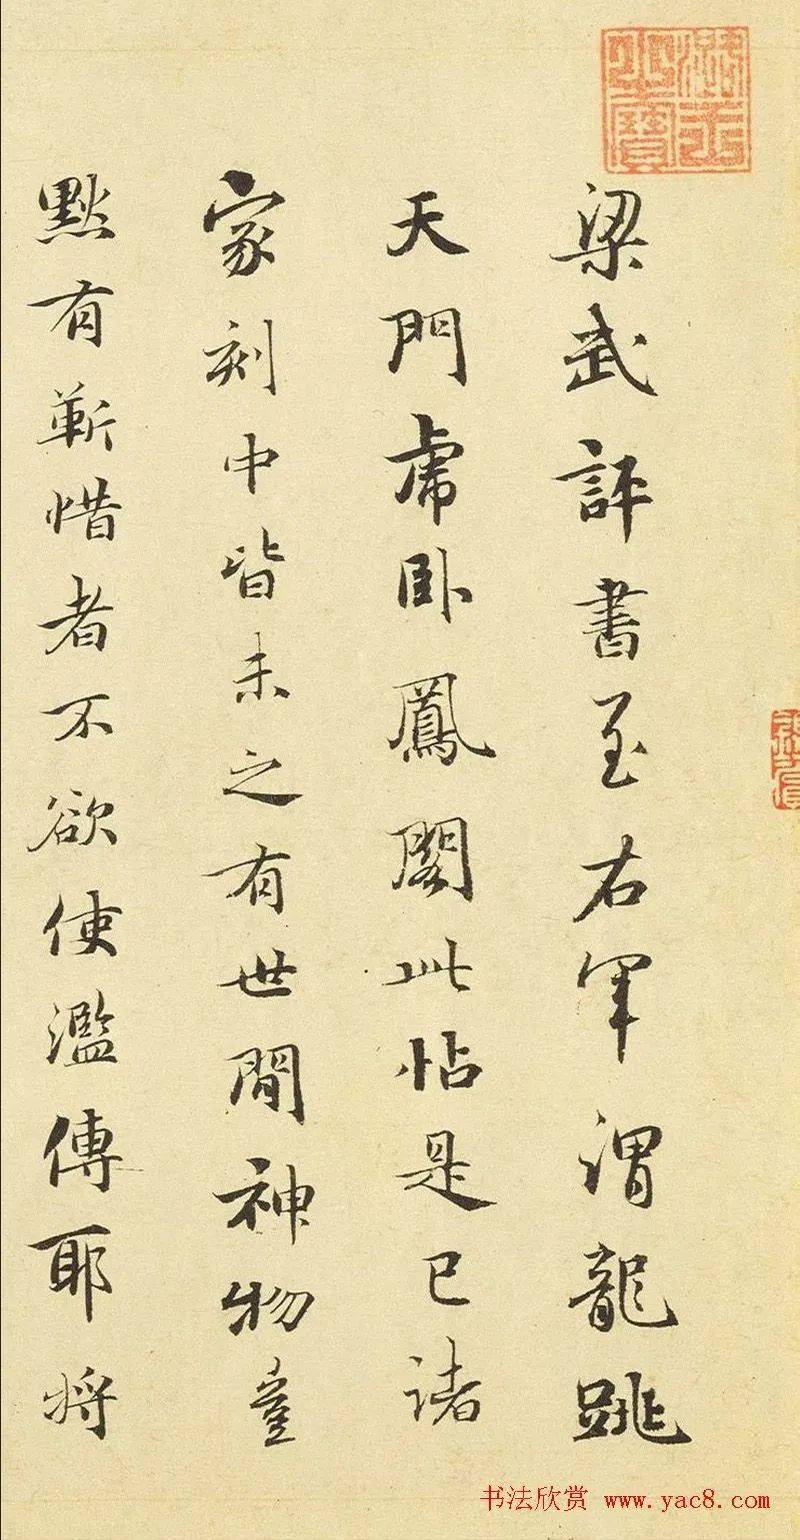 梁武評書至右軍謂龍跳
天門虎卧鳳閣此帖是已諸
家刻中皆未之有世間神物豈
默有靳惜者不欲使濫傳耶將
书法欣赏 www.yac8.com